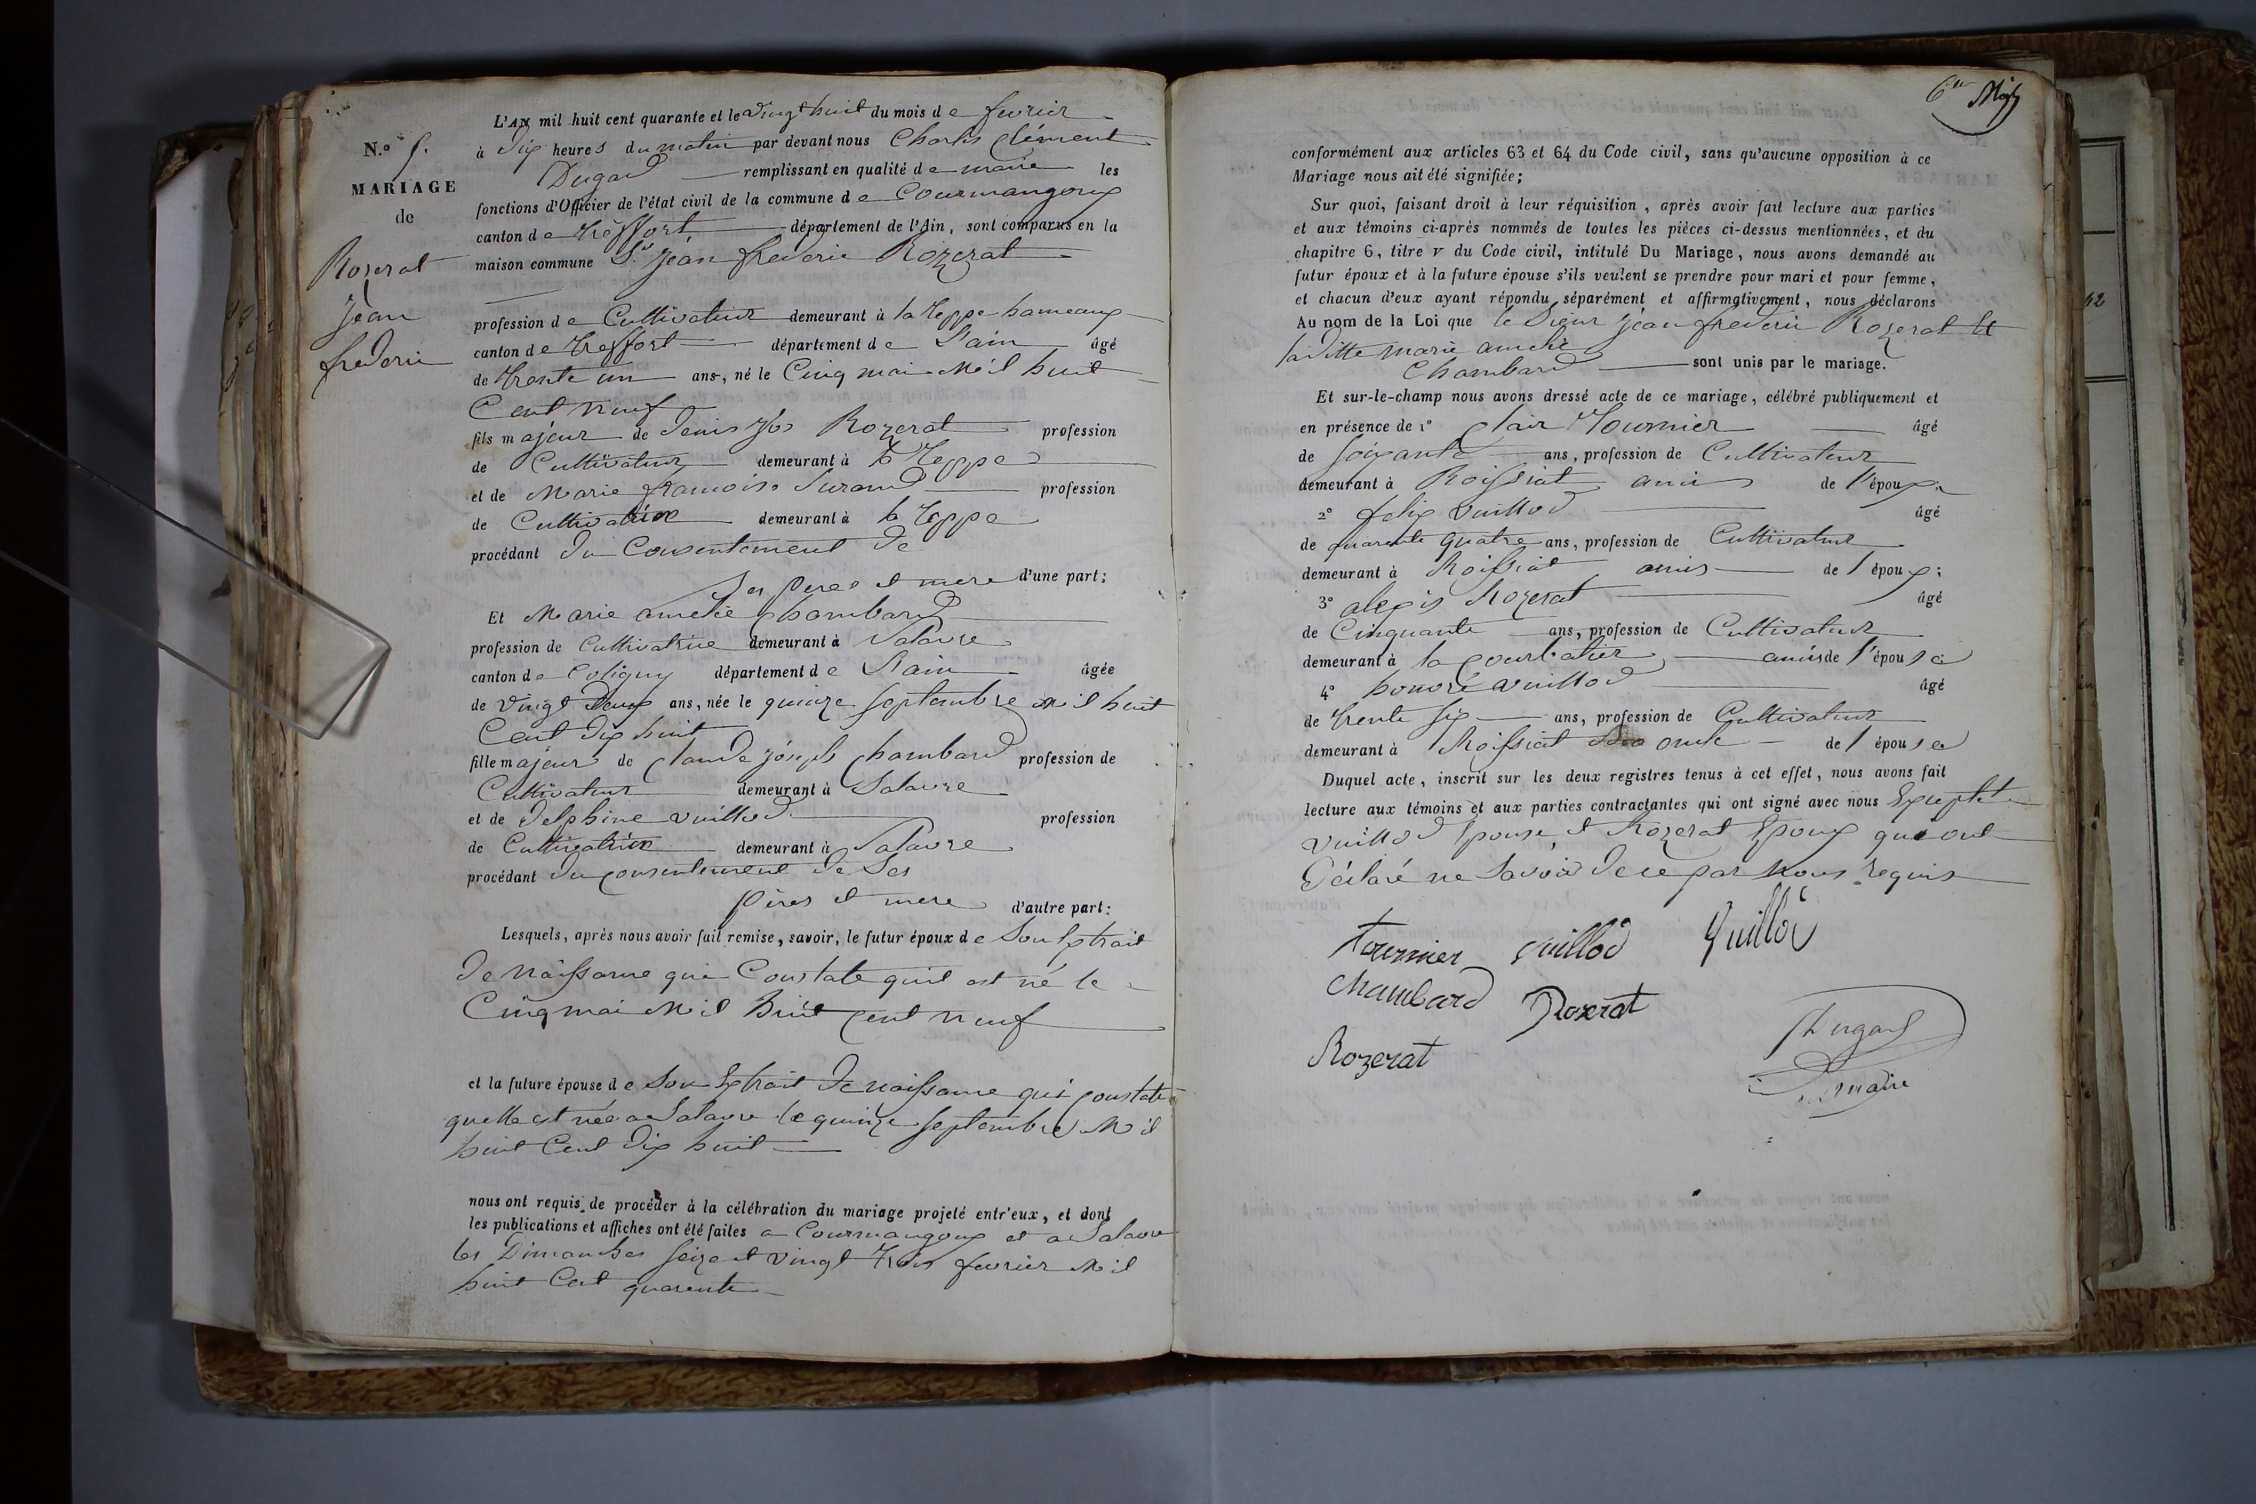 L'AN mil huit cent quarante et le vingt huit du mois de fevrier
N.° 5.
à dix heures du matin par devant nous Charles Clément
MARIAGE
Dugad remplissant en qualité de maire les
de
fonctions d'Officier de l'état civil de la commune de Courmangoux
canton de treffort département de l'Ain, sont comparus en la
Rozerat
jean
frederic
maison commune Sr jean frederic Rozerat
profession de Cultivateur demeurant à la teppe hameaux
canton de treffort département de l'ain âgé
de trente un ans, né le Cinq mai Mil huit
Cent neuf
fils majeur de denis jh Rozerat profession
de Cultivateur demeurant à la teppe
et de Marie francoise Durand profession
de Cultivatrice demeurant à la teppe
procédant du Consentement de
Ses peres et mere d'une part;
Et Marie amelie Chambard
profession de Cultivatrice demeurant à Salavre
canton de Coligny département de l'ain âgée
de vingt deux ans, née le quinze septembre mil huit
Cent dix huit
fille majeure de Claude joseph Chambard profession de
Cultivateur demeurant à Salavre
et de delphine vuillod profession
de Cultivatrice demeurant à Salavre
procédant du consentement de Ses
pères et mere d'autre part:
Lesquels, après nous avoir fait remise, savoir, le futur époux de Son Extrait
de naissance qui Constate quil est né le
Cinq mai Mil huit Cent neuf
et la future épouse de Son Extrait de naissance qui Constate
quelle est née a Salavre le quinze septembre Mil
huit Cent dix huit
nous ont requis de procéder à la célébration du mariage projeté entr'eux, et dont
les publications et affiches ont été faites a Courmangoux et a Salavre
les Dimanches seize et vingt trois fevrier Mil
huit Cent quarente
conformément aux articles 63 et 64 du Code civil, sans qu'aucune opposition à ce
Mariage nous ait été signifiée;
Sur quoi, faisant droit à leur réquisition, après avoir fait lecture aux parties
et aux témoins ci-après nommés de toutes les pièces ci-dessus mentionnées, et du
chapitre 6, titre v du Code civil, intitulé Du Mariage, nous avons demandé au
futur époux et à la future épouse s'ils veulent se prendre pour mari et pour femme,
et chacun d'eux ayant répondu séparément et affirmativement, nous déclarons
Au nom de la Loi que le Sieur jean frederic Rozerat et
la ditte marie amelie
Chambard sont unis par le mariage.
Et sur-le-champ nous avons dressé acte de ce mariage, célébré publiquement et
en présence de 1° Clair Tournier âgé
de soixante ans, profession de Cultivateur
demeurant à Roissiat amis de l'époux
2° felix vuillod âgé
de quarente quatre ans, profession de Cultivateur
demeurant à Roissiat amis de l'époux;
3° alexis Rozerat âgé
de Cinquante ans, profession de Cultivateur
demeurant à la Courbatier amis de l'épouse
4° honoré vuillod âgé
de trente six ans, profession de Cultivateur
demeurant à Roissiat oncle de l'épouse
Duquel acte, inscrit sur les deux registres tenus à cet effet, nous avons fait
lecture aux témoins et aux parties contractantes qui ont signé avec nous Excepté
vuillod Epouse et Rozerat Epoux qui ont
déclaré ne Savoir de ce par Nous requis
Tournier vuillod Vuillod
Chambard Rozerat
Rozerat
Dugad
maire